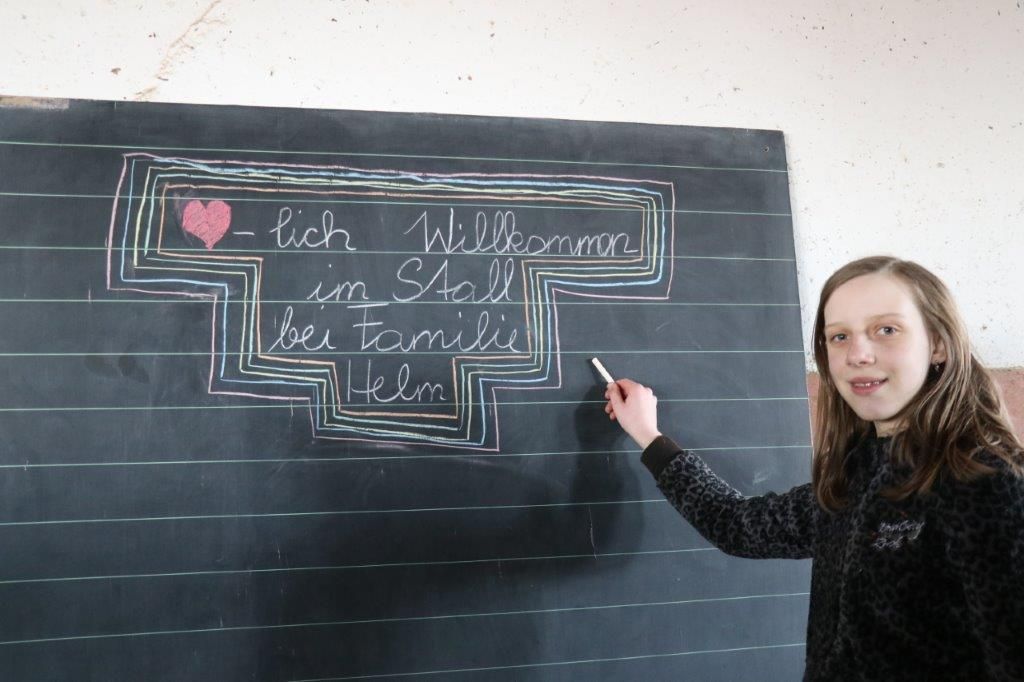 ❤-lich Willkommen
im Stall
bei Familie
Helm